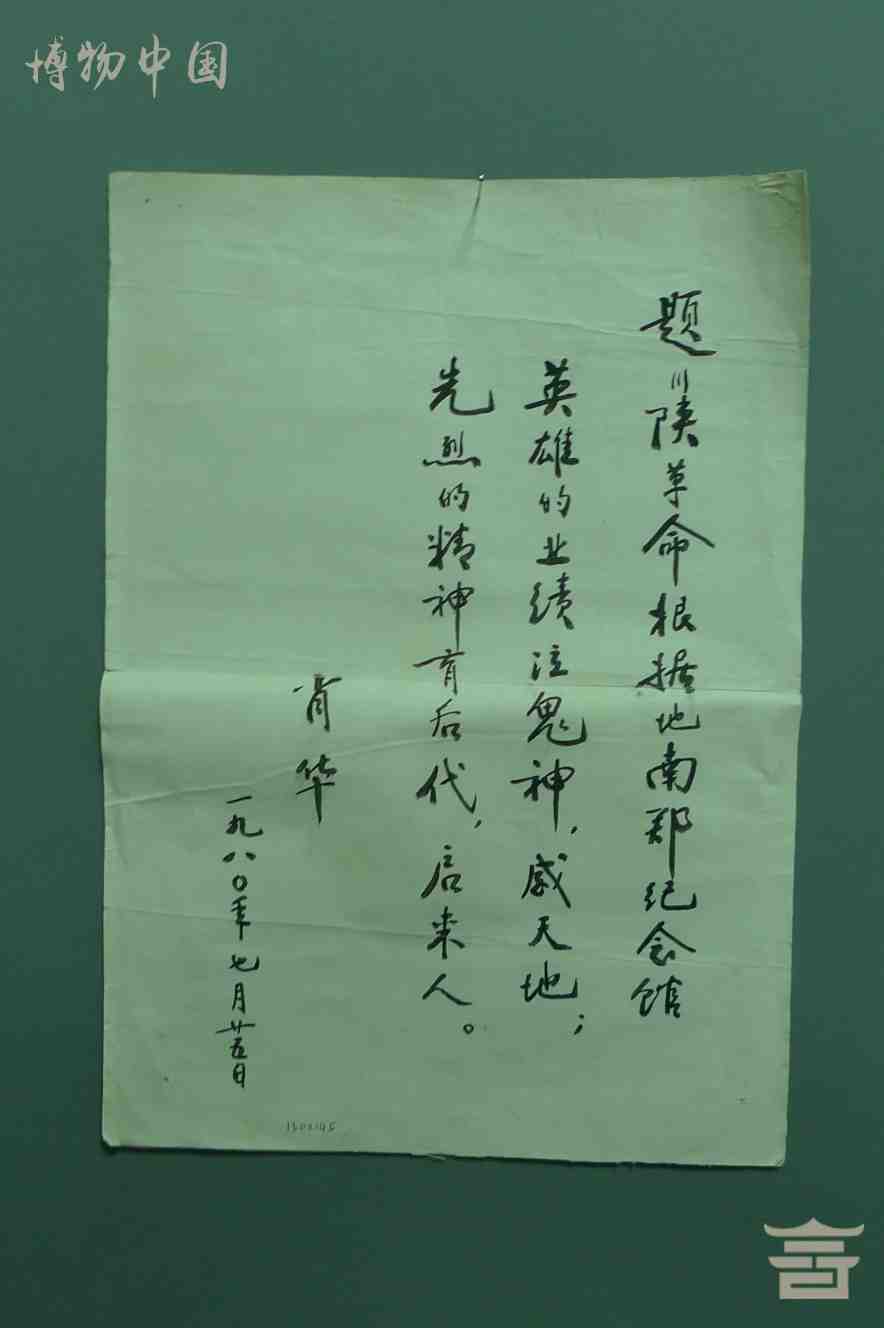 博物中国
题川陕革命根据地南郑纪念馆
英雄的业绩泣鬼神，感天地；
先烈的精神育后代，启来人。
肖华
一九八〇年七月廿五日